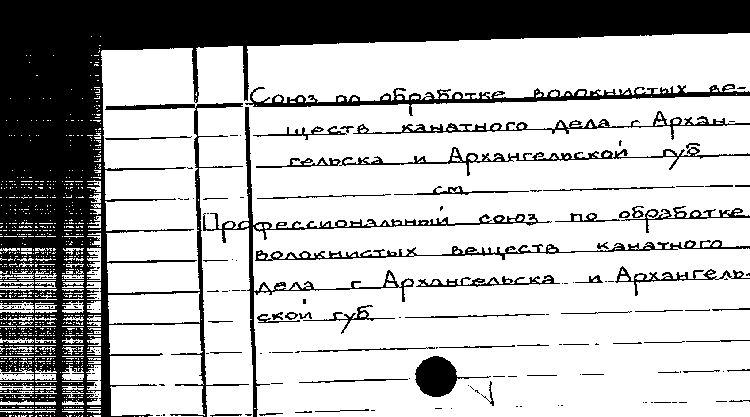 Союз по обработке волокнистых ве-
ществ канатного дела г. Архан-
гельска и Архангельской губ.
см.
Профессиональный союз по обработке
волокнистых веществ канатного
дела г Архангельска и Архангель-
ской губ.